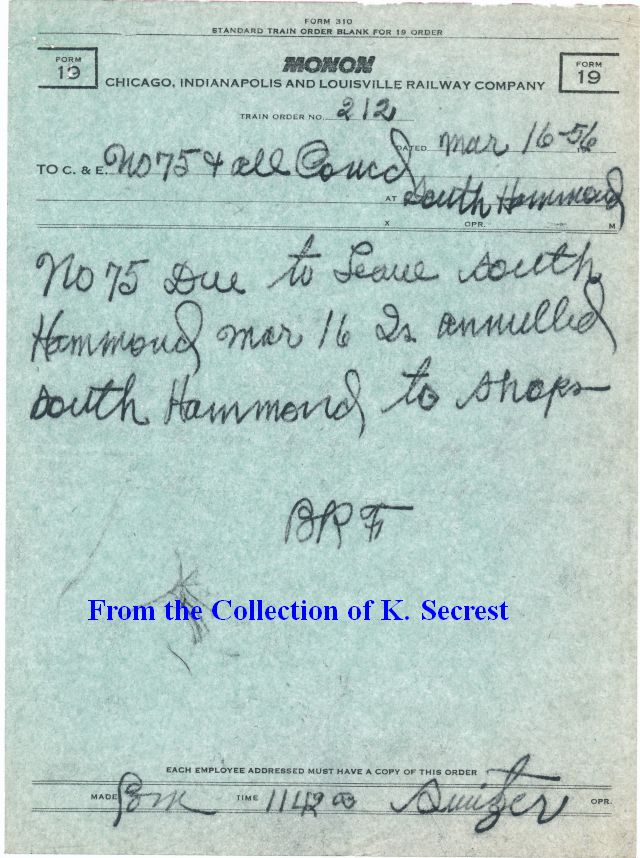 FORM 310
STANDARD TRAIN ORDER BLANK FOR 19 ORDER
FORM 19
MONON
FORM 19
CHICAGO, INDIANAPOLIS AND LOUISVILLE RAILWAY COMPANY
TRAIN ORDER NO. 212
DATED Mar 16-56
TO C. & E. No 75 & all Concd
AT South Hammond
X OPR. M
No 75 Due to Leave South
Hammond Mar 16 Is annulled
South Hammond to Shops
BRF
From the Collection of K. Secrest
EACH EMPLOYEE ADDRESSED MUST HAVE A COPY OF THIS ORDER
MADE Com TIME 1142 Switzer OPR.